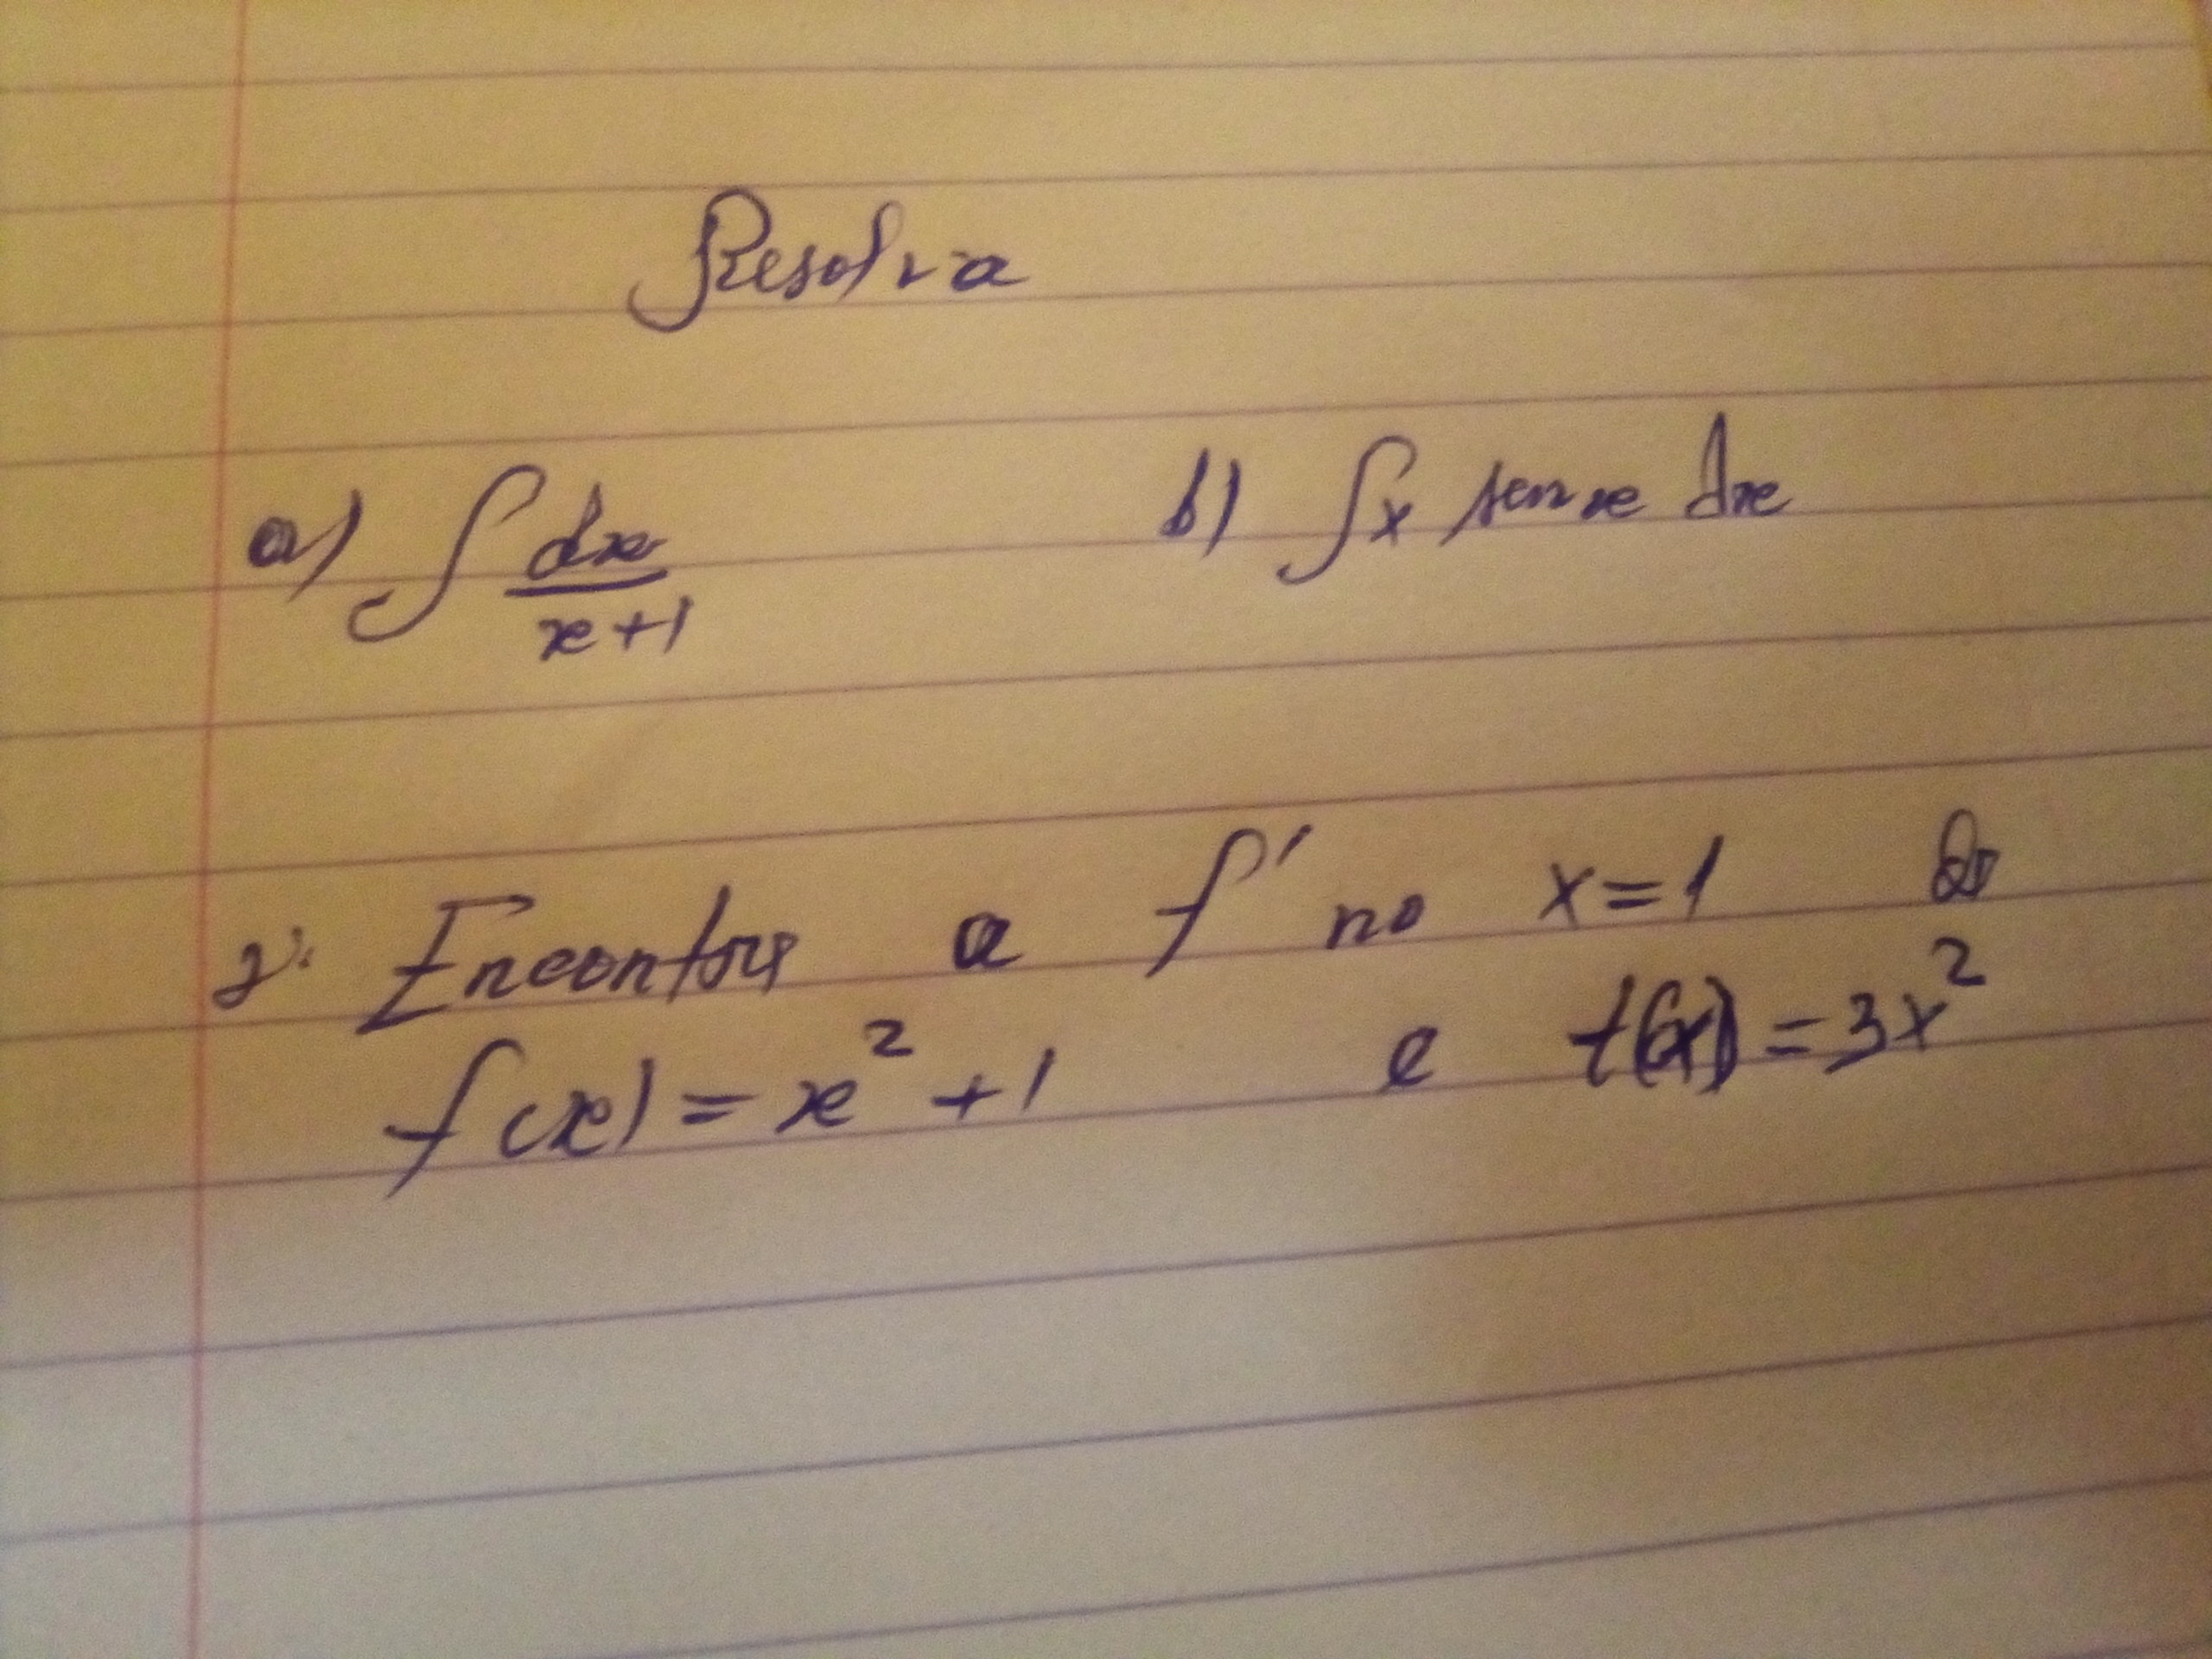 Resolva
a) ∫ dx/x+1 b) ∫x sen x dx
2. Encontre a f' no x=1
f(x) = x² + 1 e f(x) = 3x²